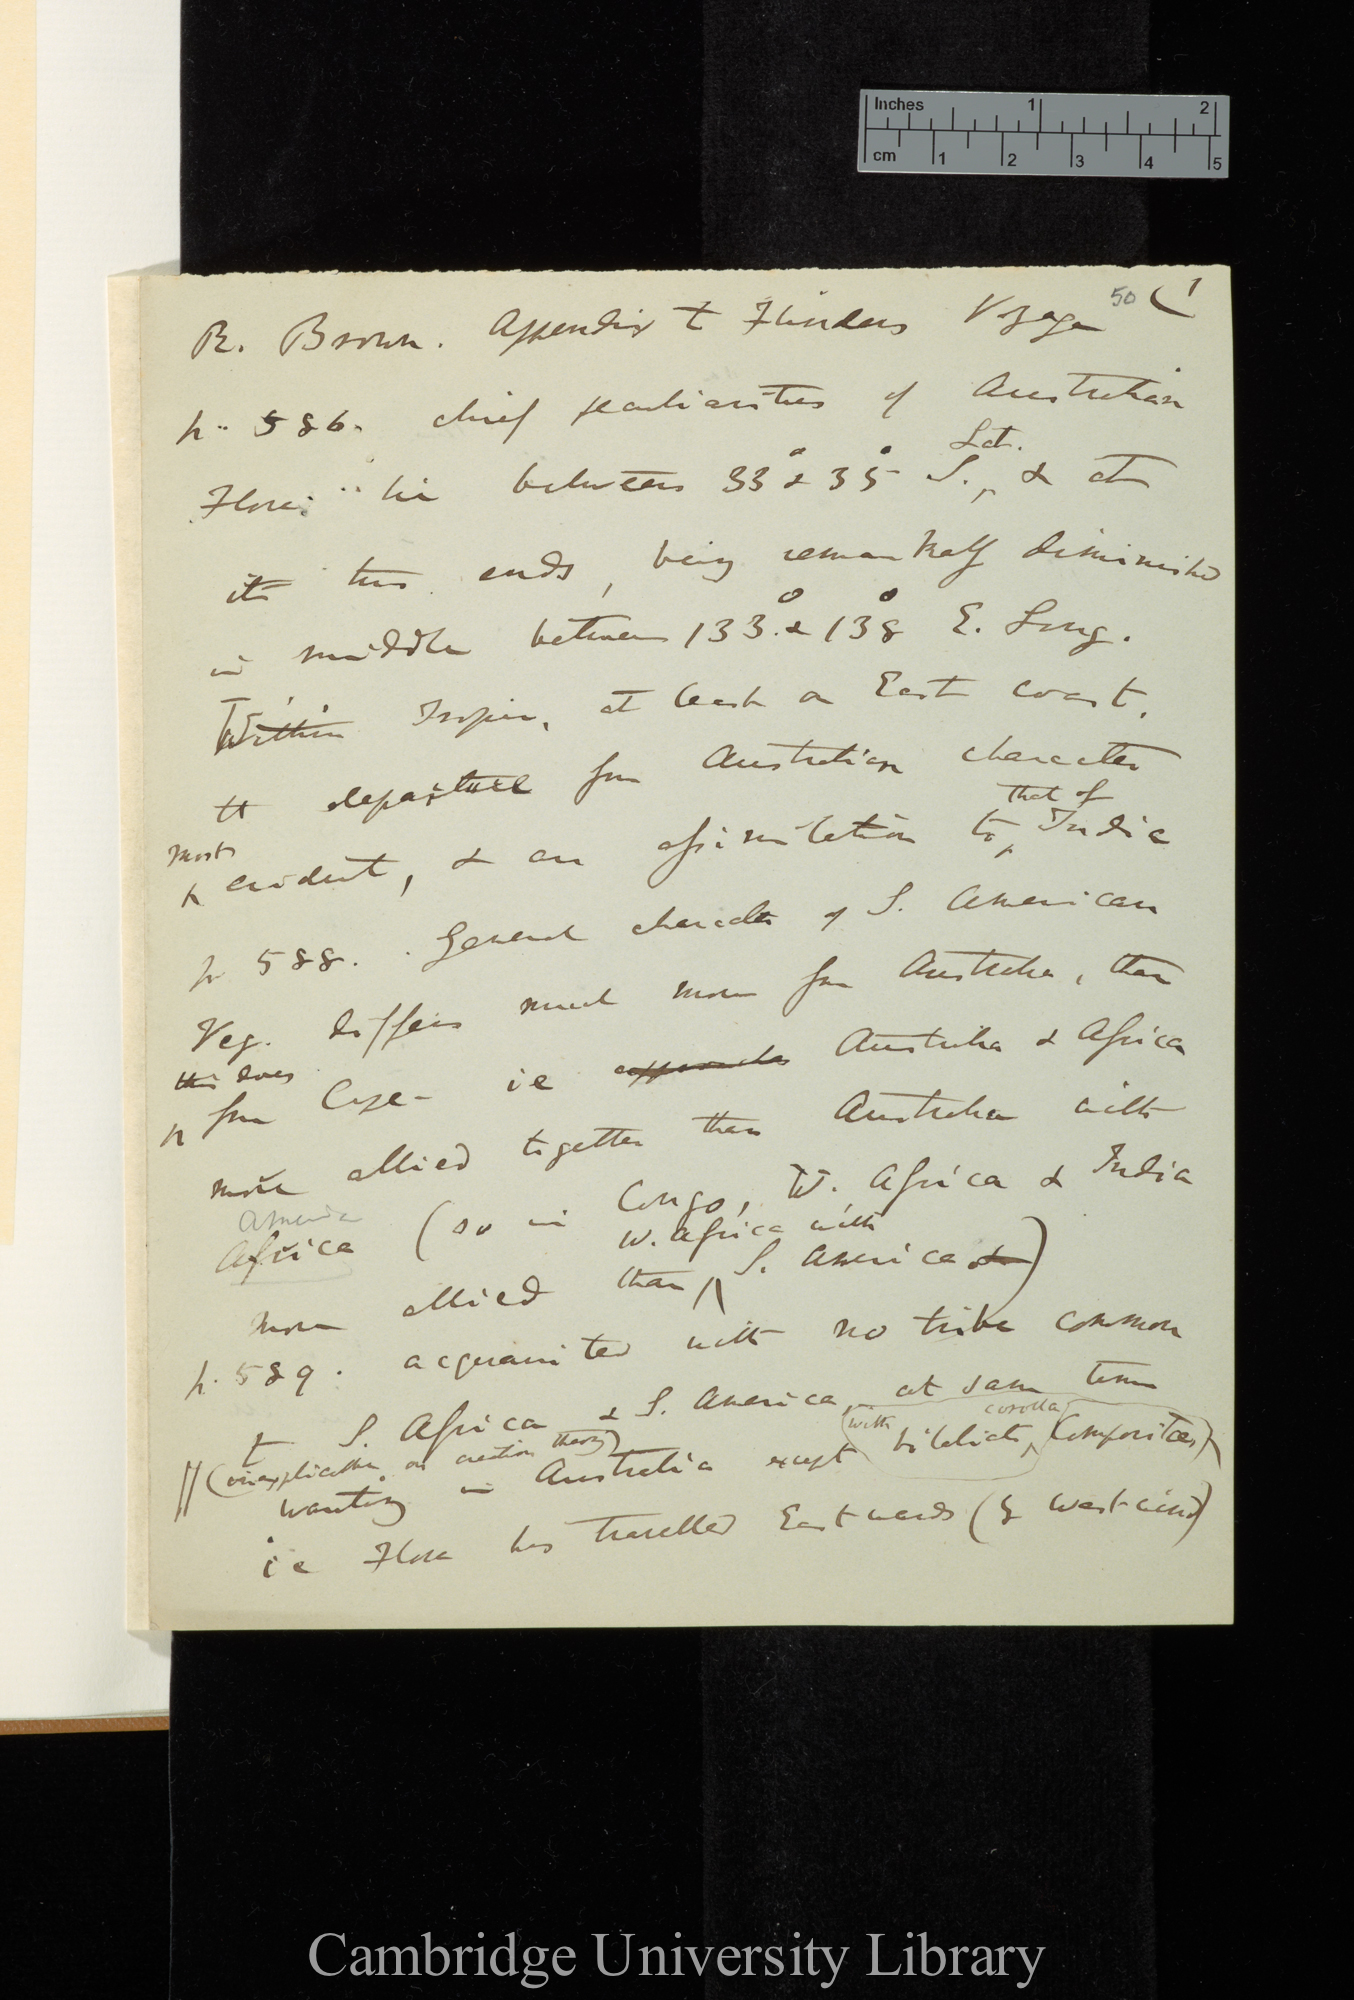 Inches 1 2
cm 1 2 3 4 5
50 (1
R. Brown. Appendix to Flinders Voyage
p. 586. chief peculiarities of Australian
Flora lie between 33° & 35° S. Lat., & at
its two ends, being remarkably diminished
in middle between 133° & 138° E. Long.
Within Tropics, at least on East coast,
departure from Australian character
most evident, & an assimilation to that of India
p 588. General character of S. American
Veg. differs much more from Australia, than
this does from Cape— ie approaches Australia & Africa
more allied together than Australia with
America Africa (so in Congo, W. Africa & India
more allied than W. Africa with S. America &)
p. 589. acquainted with no tribe common
to S. Africa & S. America, at same time
(inexplicable on creation theory)
wanting in Australia except with bilabiate corolla Compositae
ie Flora has travelled Eastwards (by west-wind)
Cambridge University Library